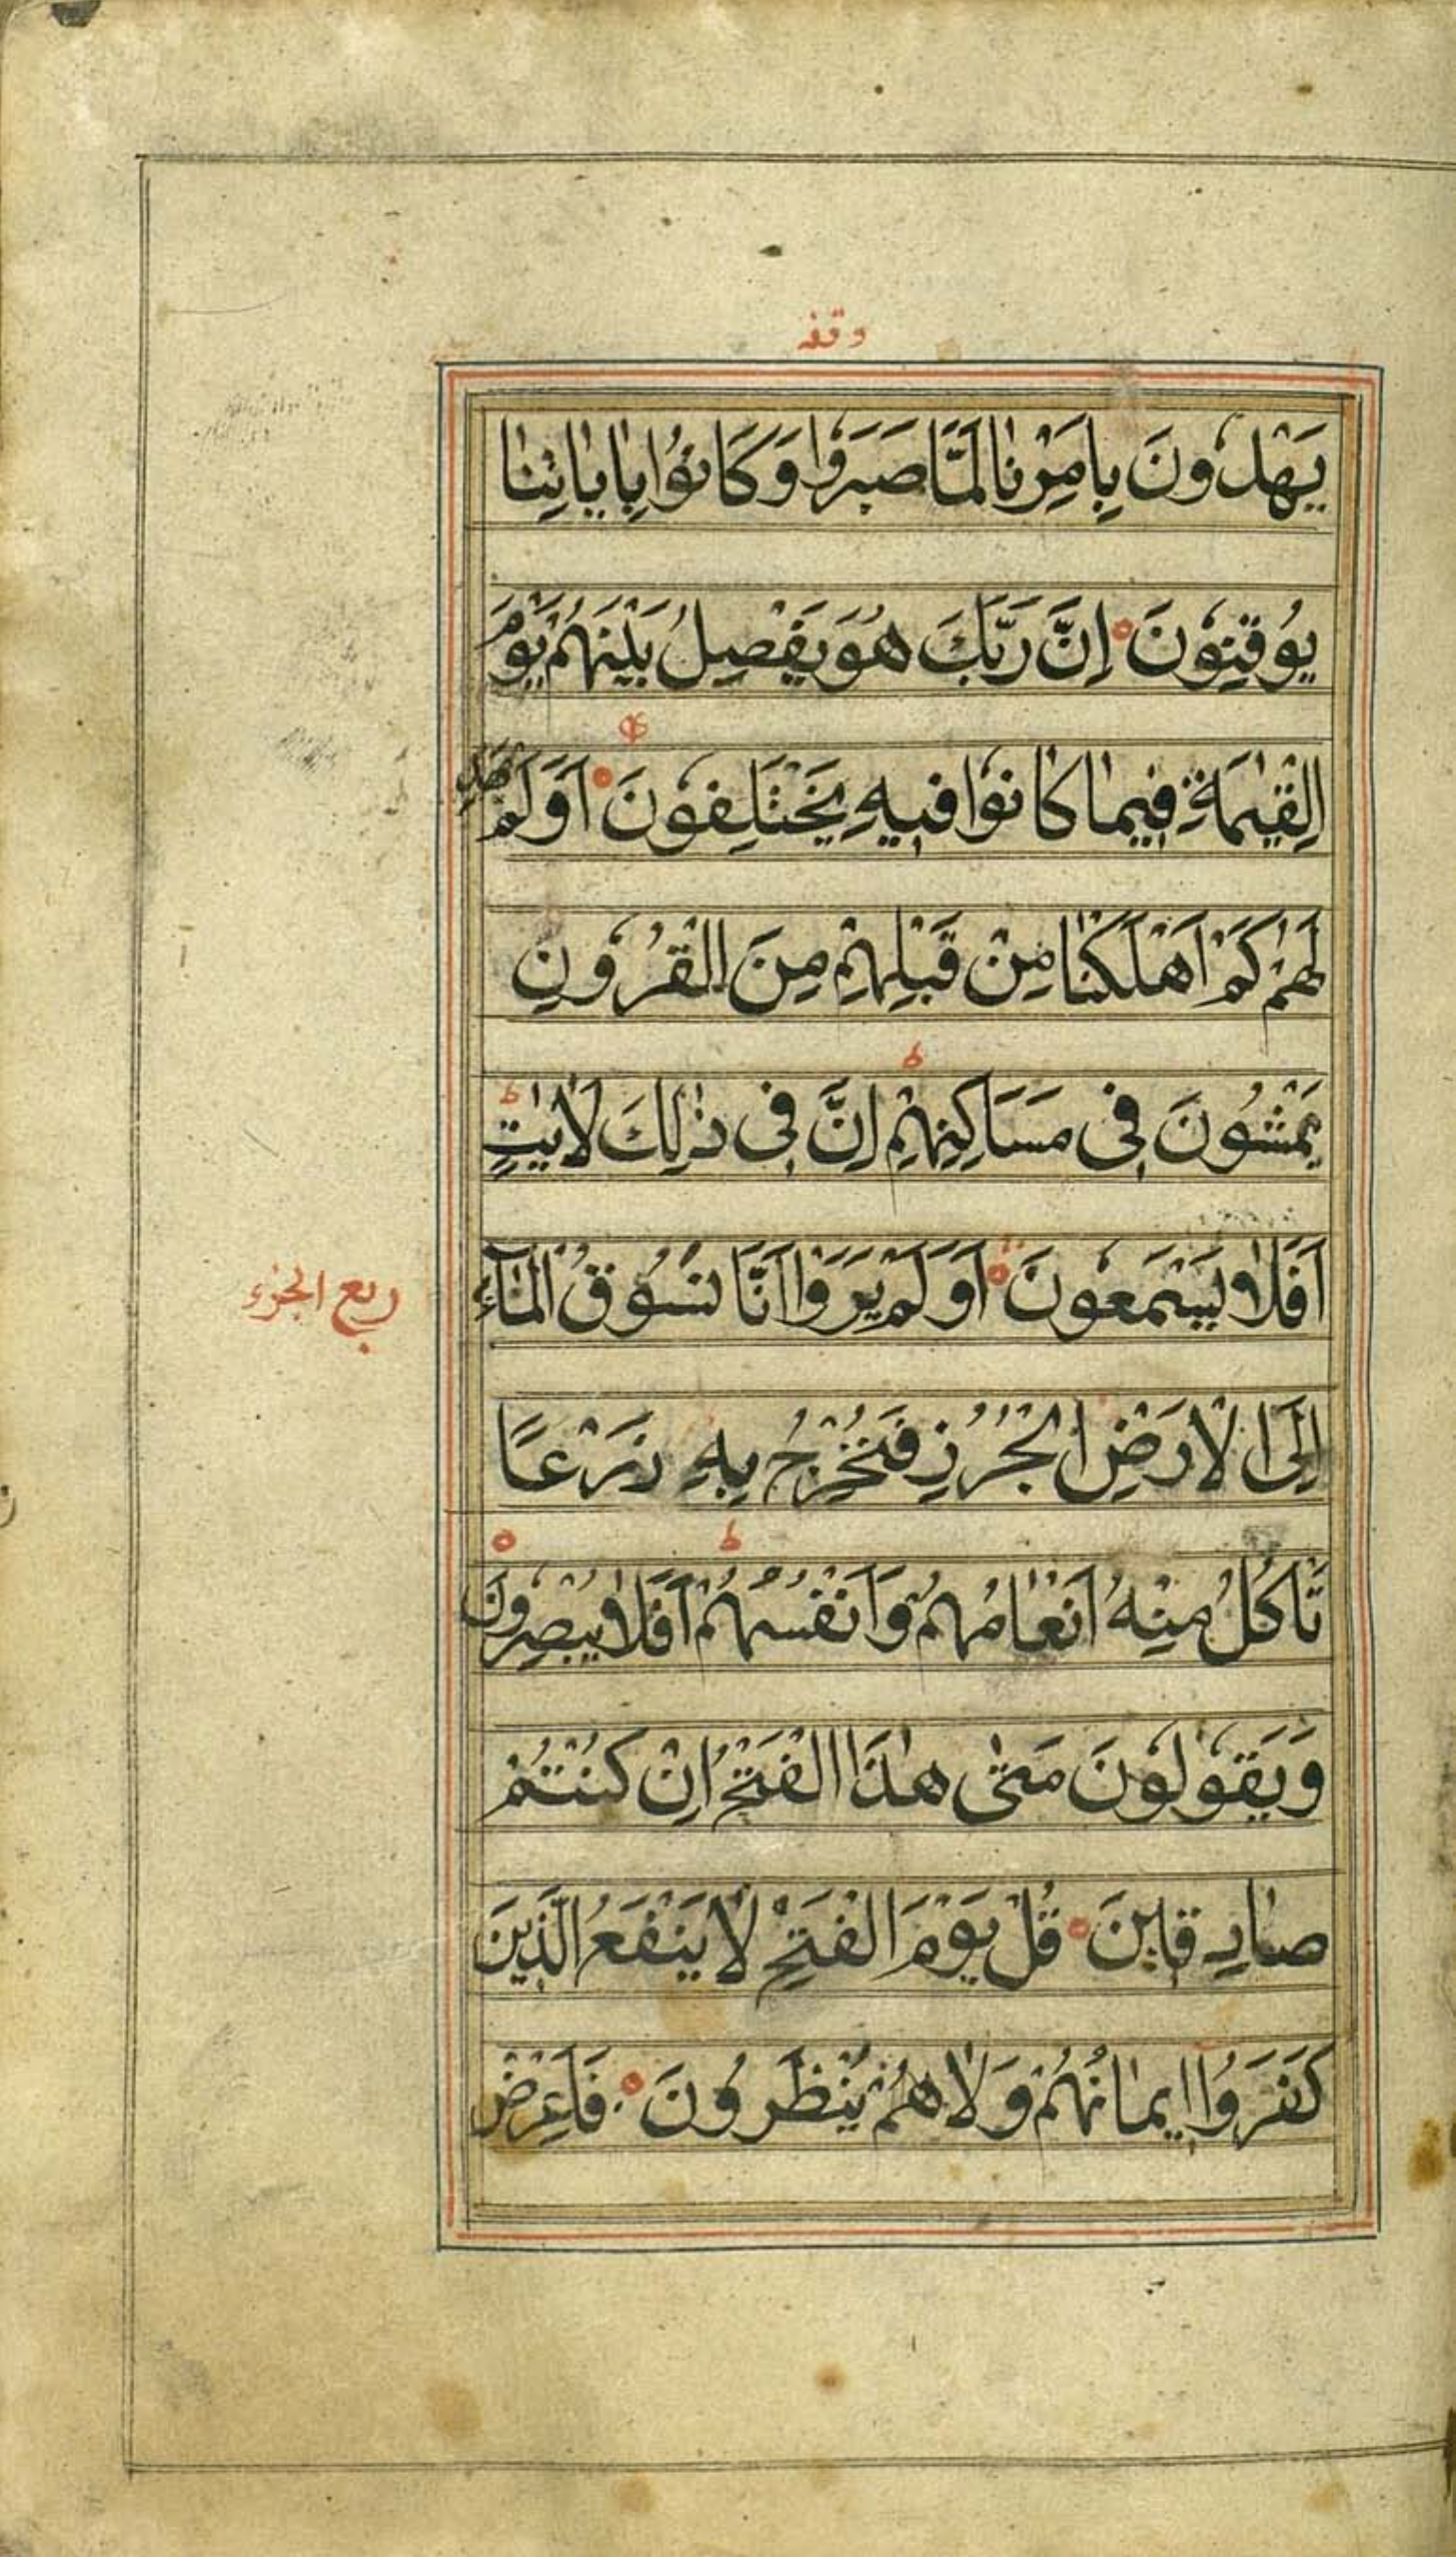 وقفه
يَهْدُونَ بِاَمْرِنَا لَمَّا صَبَرُوا وَكَانُوا بِاٰيَاتِنَا
يُوقِنُونَ اِنَّ رَبَّكَ هُوَ يَفْصِلُ بَيْنَهُمْ يَوْمَ
الْقِيٰمَةِ فِيمَا كَانُوا فِيهِ يَخْتَلِفُونَ اَوَلَمْ يَهْدِ
لَهُمْ كَمْ اَهْلَكْنَا مِنْ قَبْلِهِمْ مِنَ الْقُرُونِ
ط
يَمْشُونَ فِى مَسَاكِنِهِمْ اِنَّ فِى ذٰلِكَ لَاٰيٰتٍ ط
اَفَلَا يَسْتَمِعُونَ اَوَلَمْ يَرَوْا اَنَّا نَسُوقُ الْمَآءَ
ربع الجزء
اِلَى الْاَرْضِ الْجُرُزِ فَنُخْرِجُ بِهِ زَرْعًا
ط
تَاْكُلُ مِنْهُ اَنْعَامُهُمْ وَاَنْفُسُهُمْ اَفَلَا يُبْصِرُونَ
وَيَقُولُونَ مَتٰى هٰذَا الْفَتْحُ اِنْ كُنْتُمْ
صَادِقِينَ قُلْ يَوْمَ الْفَتْحِ لَا يَنْفَعُ الَّذِينَ
كَفَرُوا اِيمَانُهُمْ وَلَا هُمْ يُنْظَرُونَ فَاَعْرِضْ